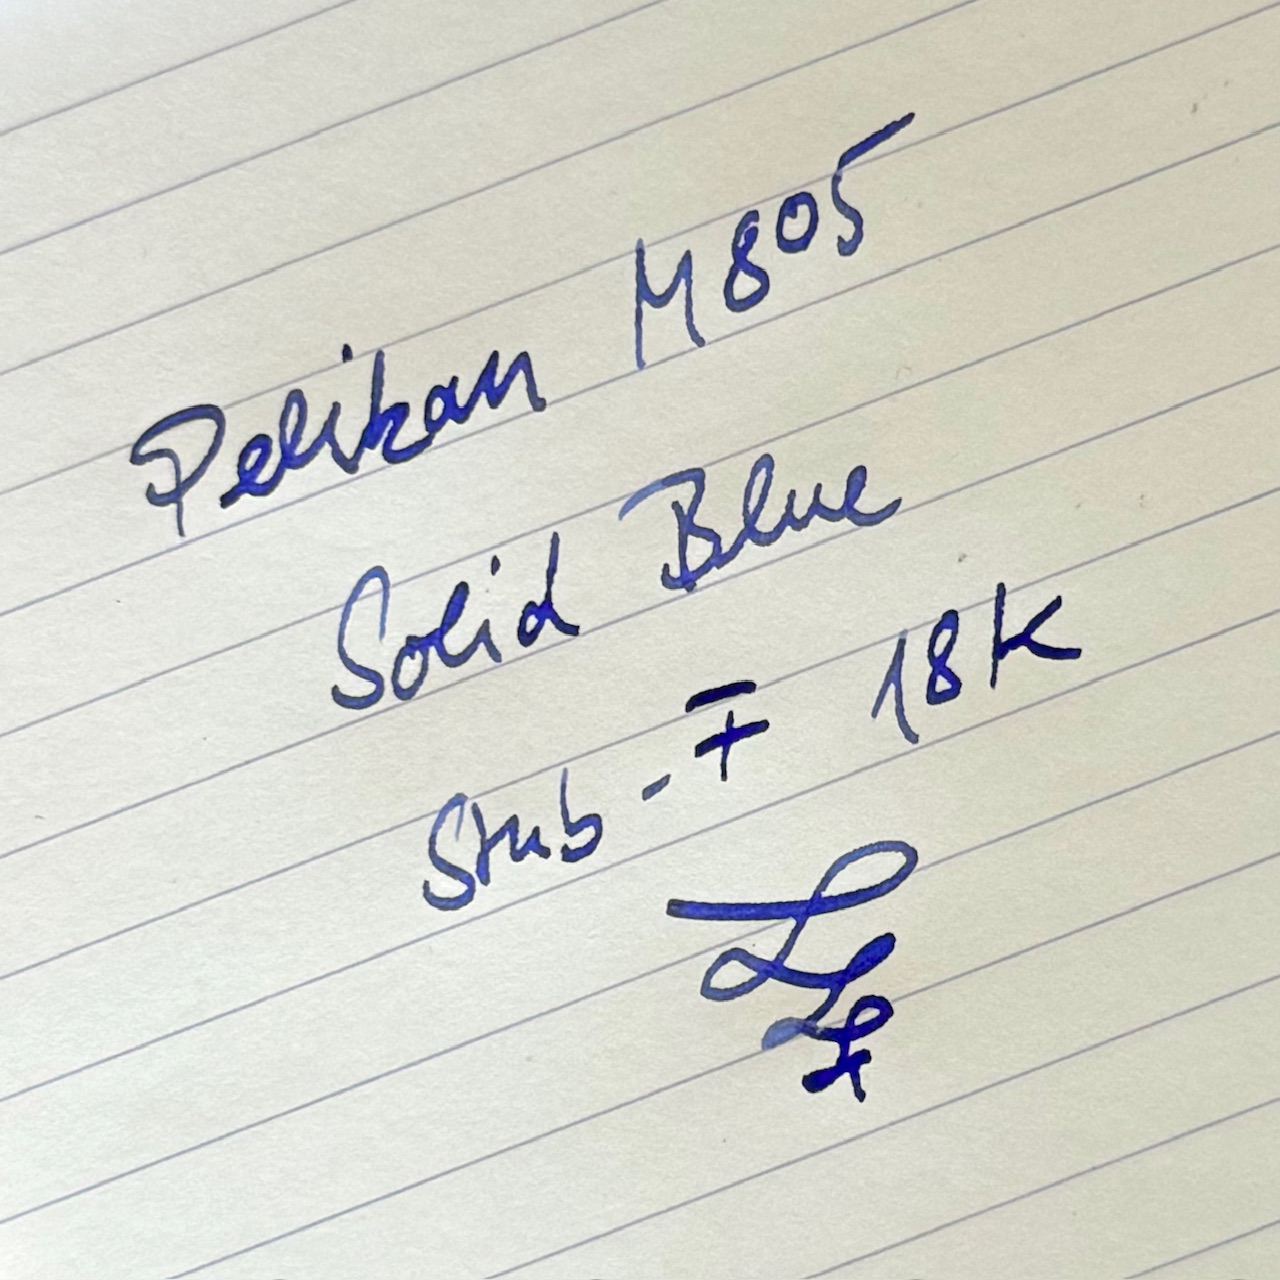 Pelikan M805
Solid Blue
Stub - F 18K